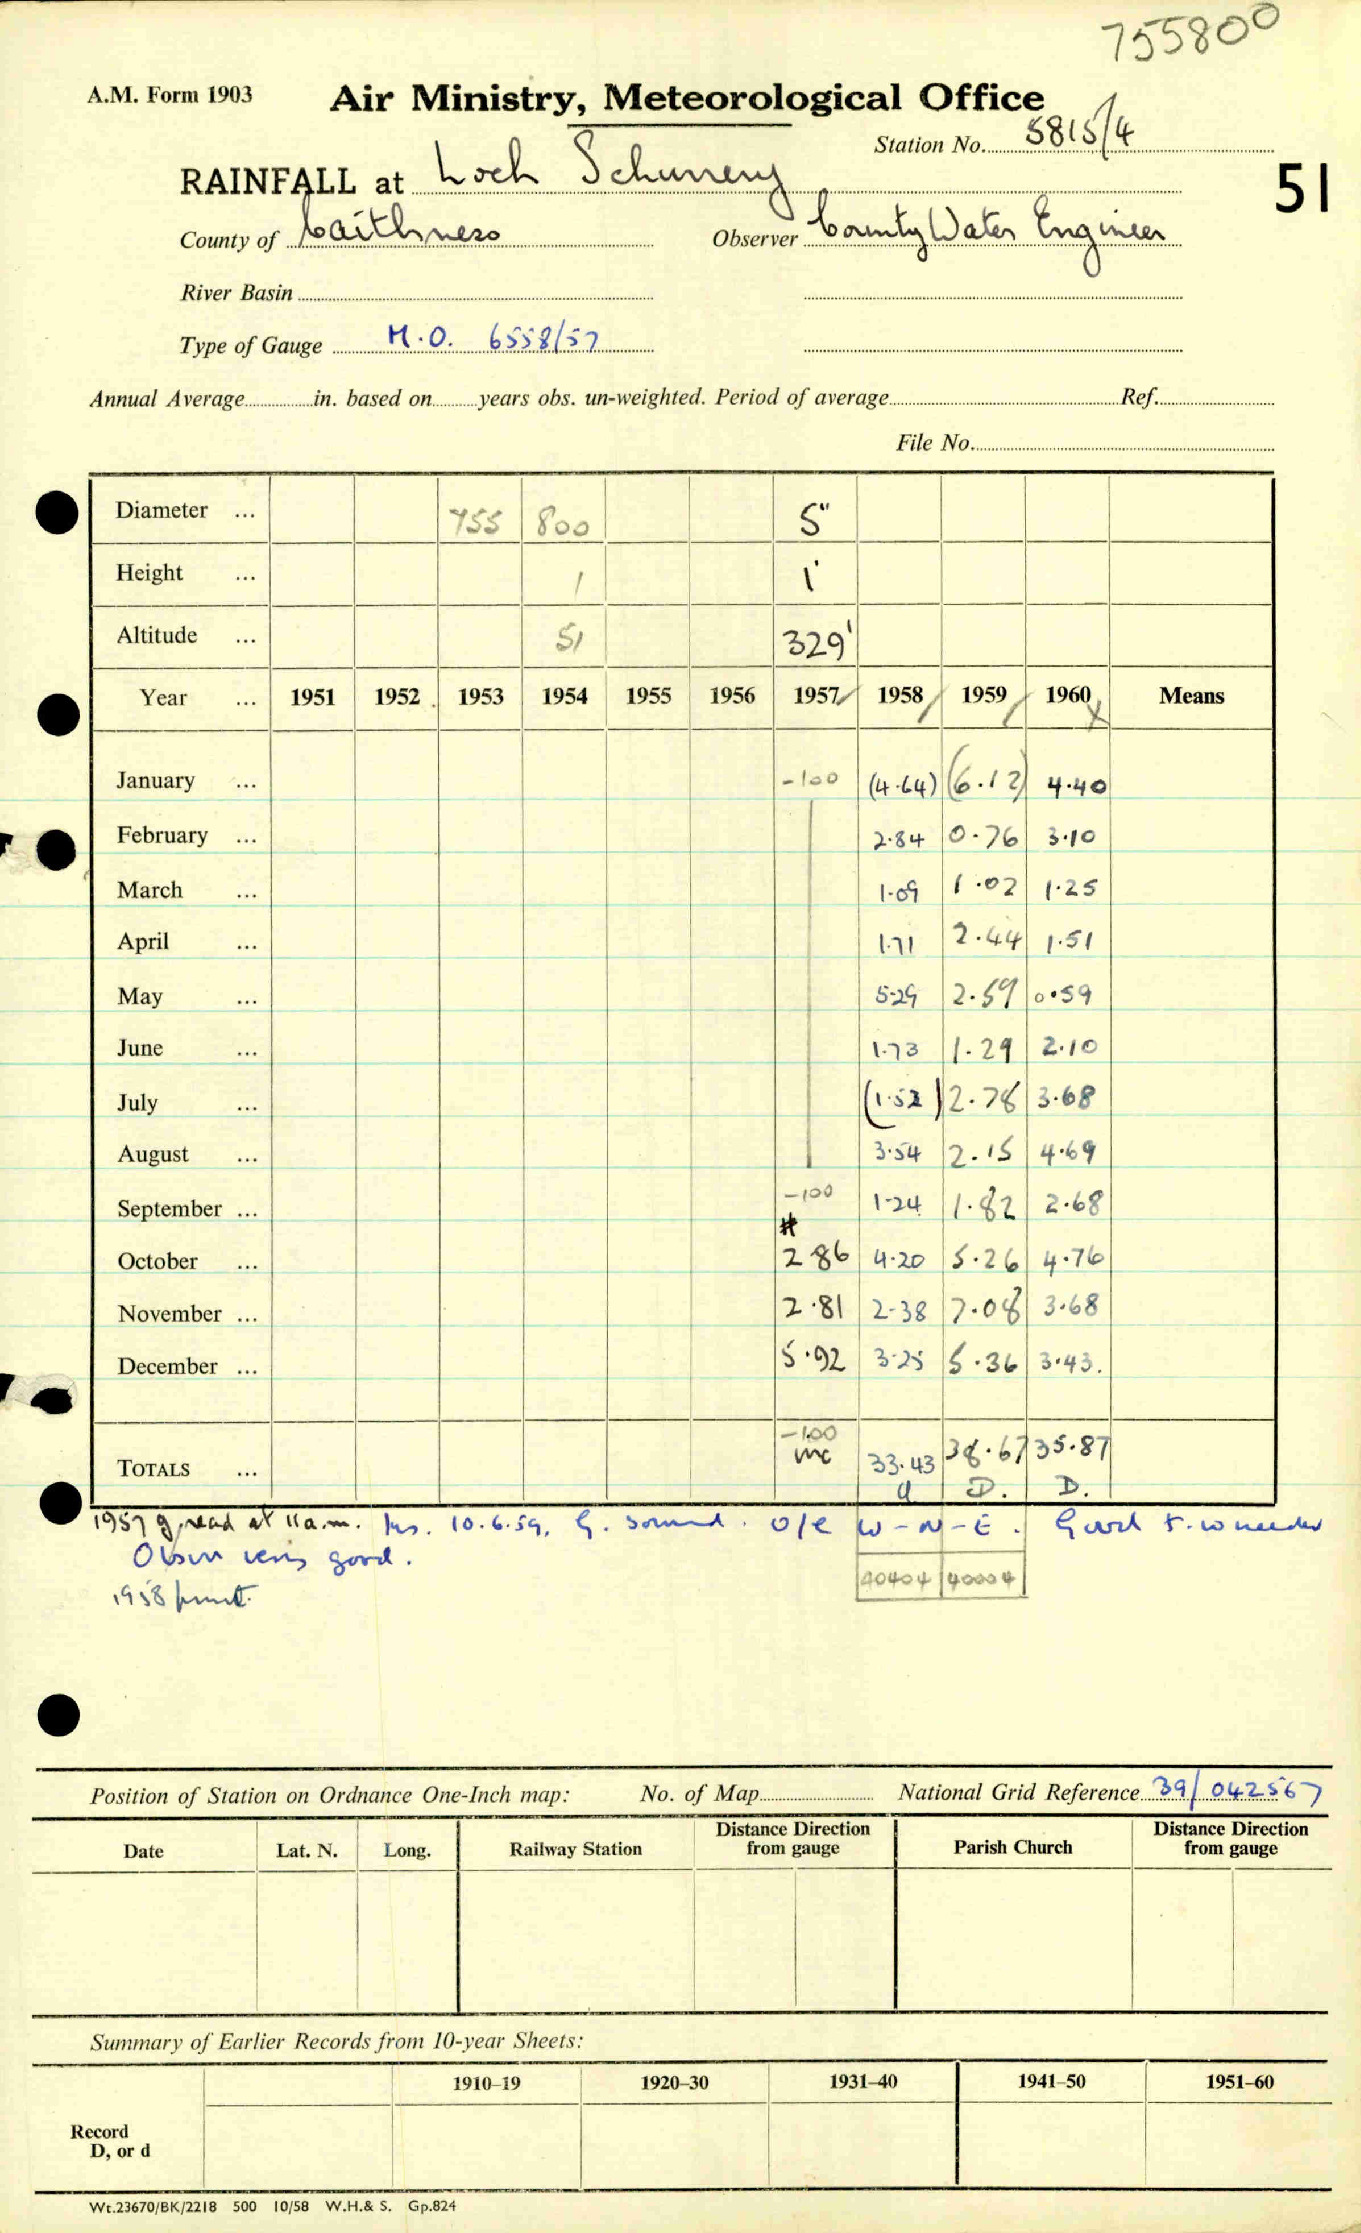 755800
A.M. Form 1903 Air Ministry, Meteorological Office
Station No. 5815/4
RAINFALL at Loch Schurrery 51
County of Caithness Observer County Water Engineer
River Basin
Type of Gauge M.O. 6558/57
Annual Average in. based on years obs. un-weighted. Period of average Ref.
File No.
Diameter ... 755 800 5"
Height ... 1 1'
Altitude ... 51 329'
Year ... 1951 1952 1953 1954 1955 1956 1957 1958 1959 1960 Means
January ... -100 (4.64) (6.12) 4.40
February ... 2.84 0.76 3.10
March ... 1.09 1.02 1.25
April ... 1.71 2.44 1.51
May ... 5.29 2.59 0.59
June ... 1.73 1.29 2.10
July ... (1.52) 2.78 3.68
August ... 3.54 2.15 4.69
September ... -100 1.24 1.82 2.68
October ... 2.86 4.20 5.26 4.76
November ... 2.81 2.38 7.08 3.68
December ... 5.92 3.25 5.36 3.43.
-100
TOTALS ... inc 33.43 38.67 35.87
D. D.
1957 g. read at 11 a.m. Ins. 10.6.59. G. sound. O/e W-N-E. Good
very good.
1958
40404 40004
Position of Station on Ordnance One-Inch map: No. of Map National Grid Reference 39/042567
Date Lat. N. Long. Railway Station Distance Direction from gauge Parish Church Distance Direction from gauge
Summary of Earlier Records from 10-year Sheets:
1910–19 1920–30 1931–40 1941–50 1951–60
Record
D, or d
Wt.23670/BK/2218 500 10/58 W.H.& S. Gp.824